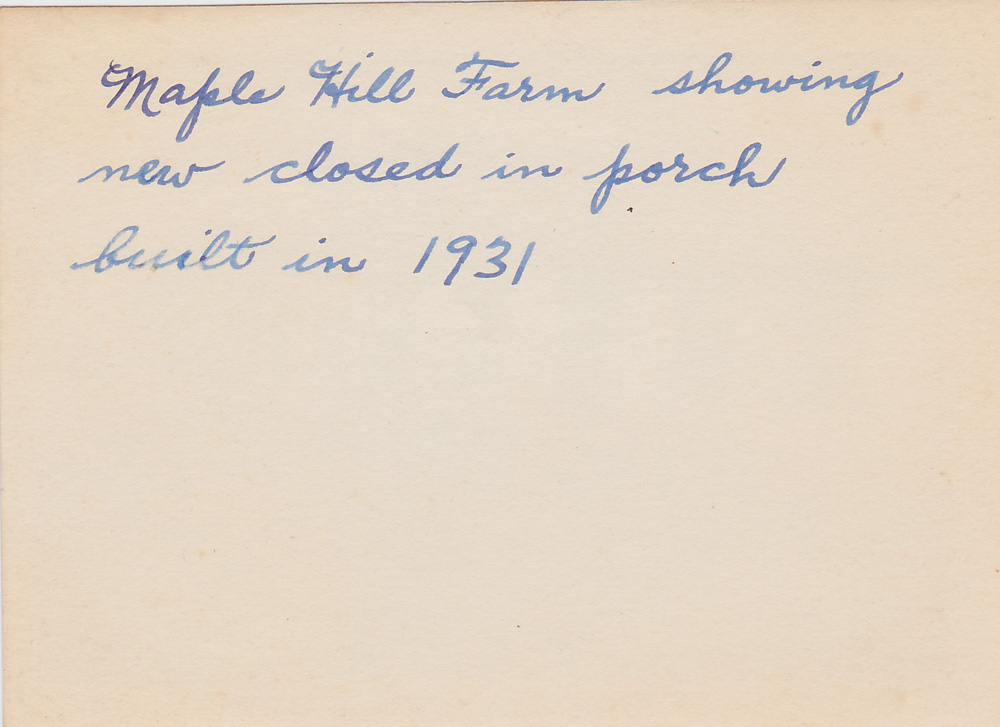 Maple Hill Farm showing
new closed in porch
built in 1931